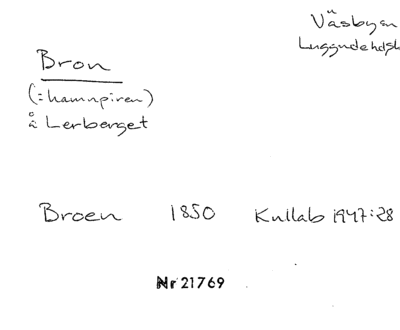 Väsbysn
Luggude hds
Bron
(= hamnpiren)
å Lerberget
Broen 1850 Kullab 1947:28
Nr 21769